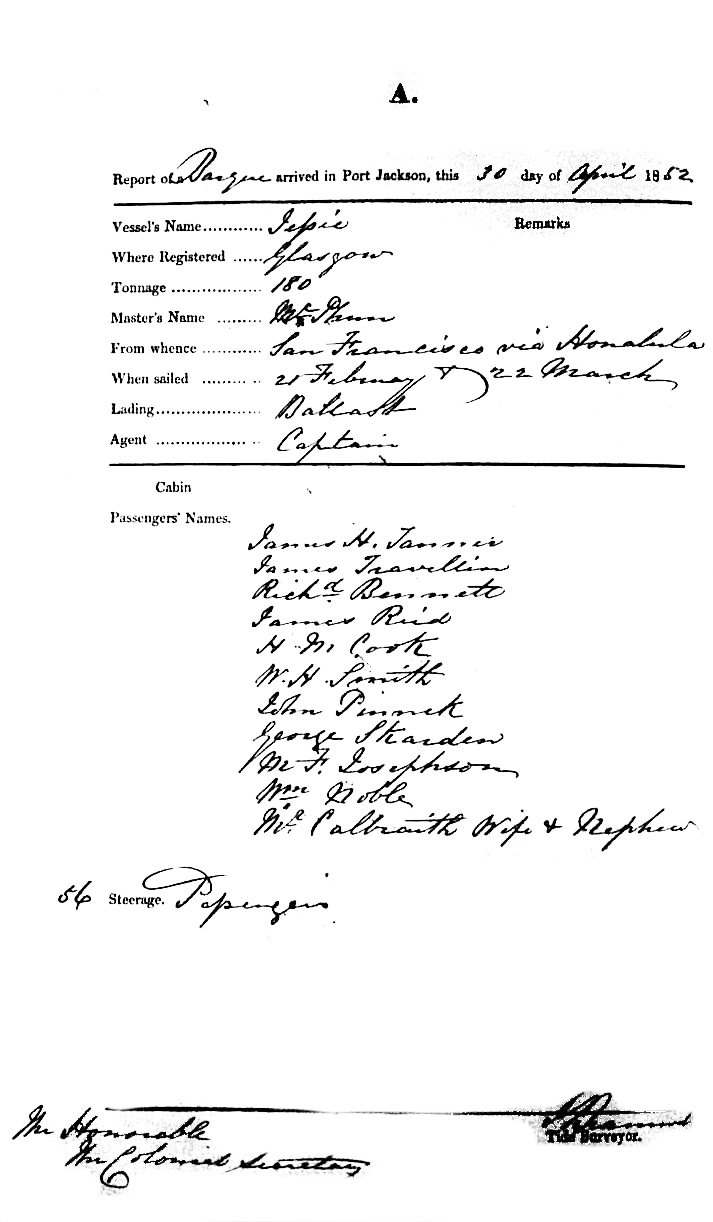 A.
Report of a Barque arrived in Port Jackson, this 30 day of April 1852
Vessel's Name............ Jessie Remarks
Where Registered ...... Glasgow
Tonnage .................. 180
Master's Name .........
From whence ............ San Francisco via Honalula
When sailed ......... .. 21 February & 22 March
Lading..................... Ballast
Agent .................. .. Captain
Cabin
Passengers' Names.
James H. Tanner
James Travellin
Richd Bennett
James Reid
H M Cook
W. H. Smith
John Pinnek
George Skarden
M F. Josephson
Wm Noble
Mr Calbraith Wife & Nephew
56 Steerage. Passengers
The Honorable
The Colonial Secretary
Tide Surveyor.